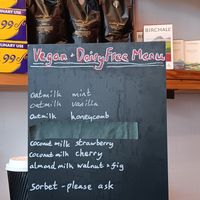 LINARY USE
99%
LINARY USE
99%
BIRCHALL
Vegan + Dairy Free Menu
oatmilk mint
oatmilk vanilla
oatmilk honeycomb
coconut milk strawberry
coconut milk cherry
almond milk walnut + fig
sorbet - please ask